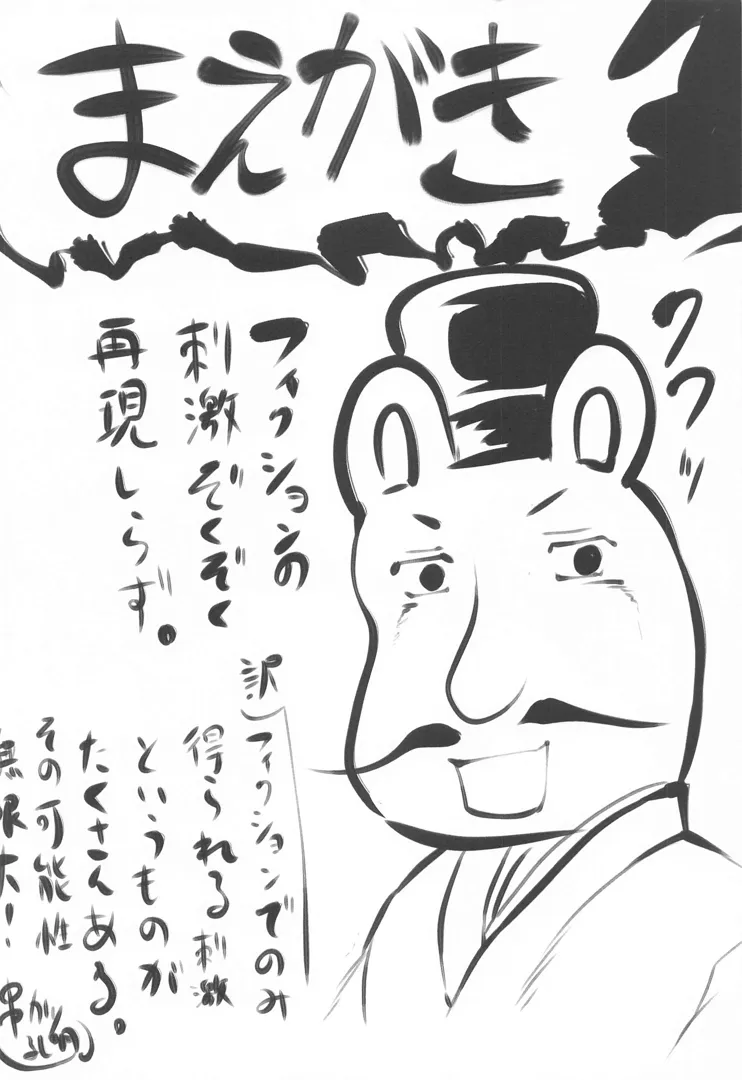 まえがき
ワワッ
フィクションの
刺激ぞくぞく
再現しらず。
訳）
フィクションでのみ
得られる刺激
というものが
たくさんある。
その可能性
無限大!